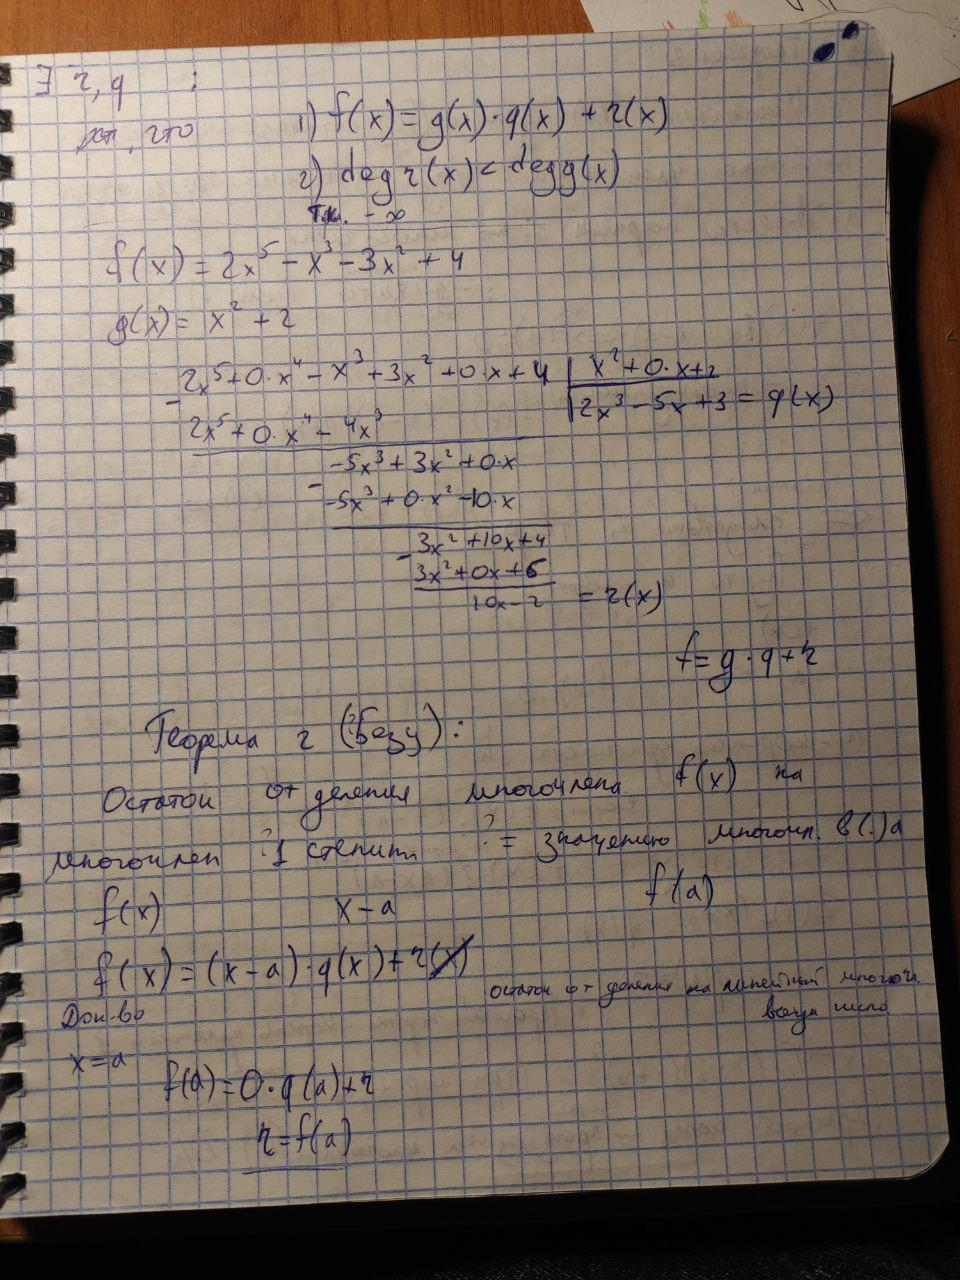 ∃ r, q :
1) f(x) = g(x)·q(x) + r(x)
что
2) deg r(x) < deg g(x)
т.к. -∞
f(x) = 2x⁵ - x³ - 3x² + 4
g(x) = x² + 2
- 2x⁵+0·x⁴ - x³ + 3x² + 0·x + 4 | x²+0·x+2
2x³ - 5x + 3 = q(x)
2x⁵ + 0·x⁴ - 4x³
-5x³ + 3x² + 0·x
- -5x³ + 0·x² - 10·x
3x² + 10x + 4
- 3x² + 0x + 6
10x - 2 = r(x)
f = g·q + r
Теорема 2 (Безу):
Остаток от деления многочлена f(x) на
многочлен 1 степени = значению многочл. в (·) a
f(x) x-a f(a)
f(x) = (x-a)·q(x) + r(x)
остаток от деления на линейный многочл
Док-во
всегда число
x=a
f(a) = 0·q(a) + r
r = f(a)